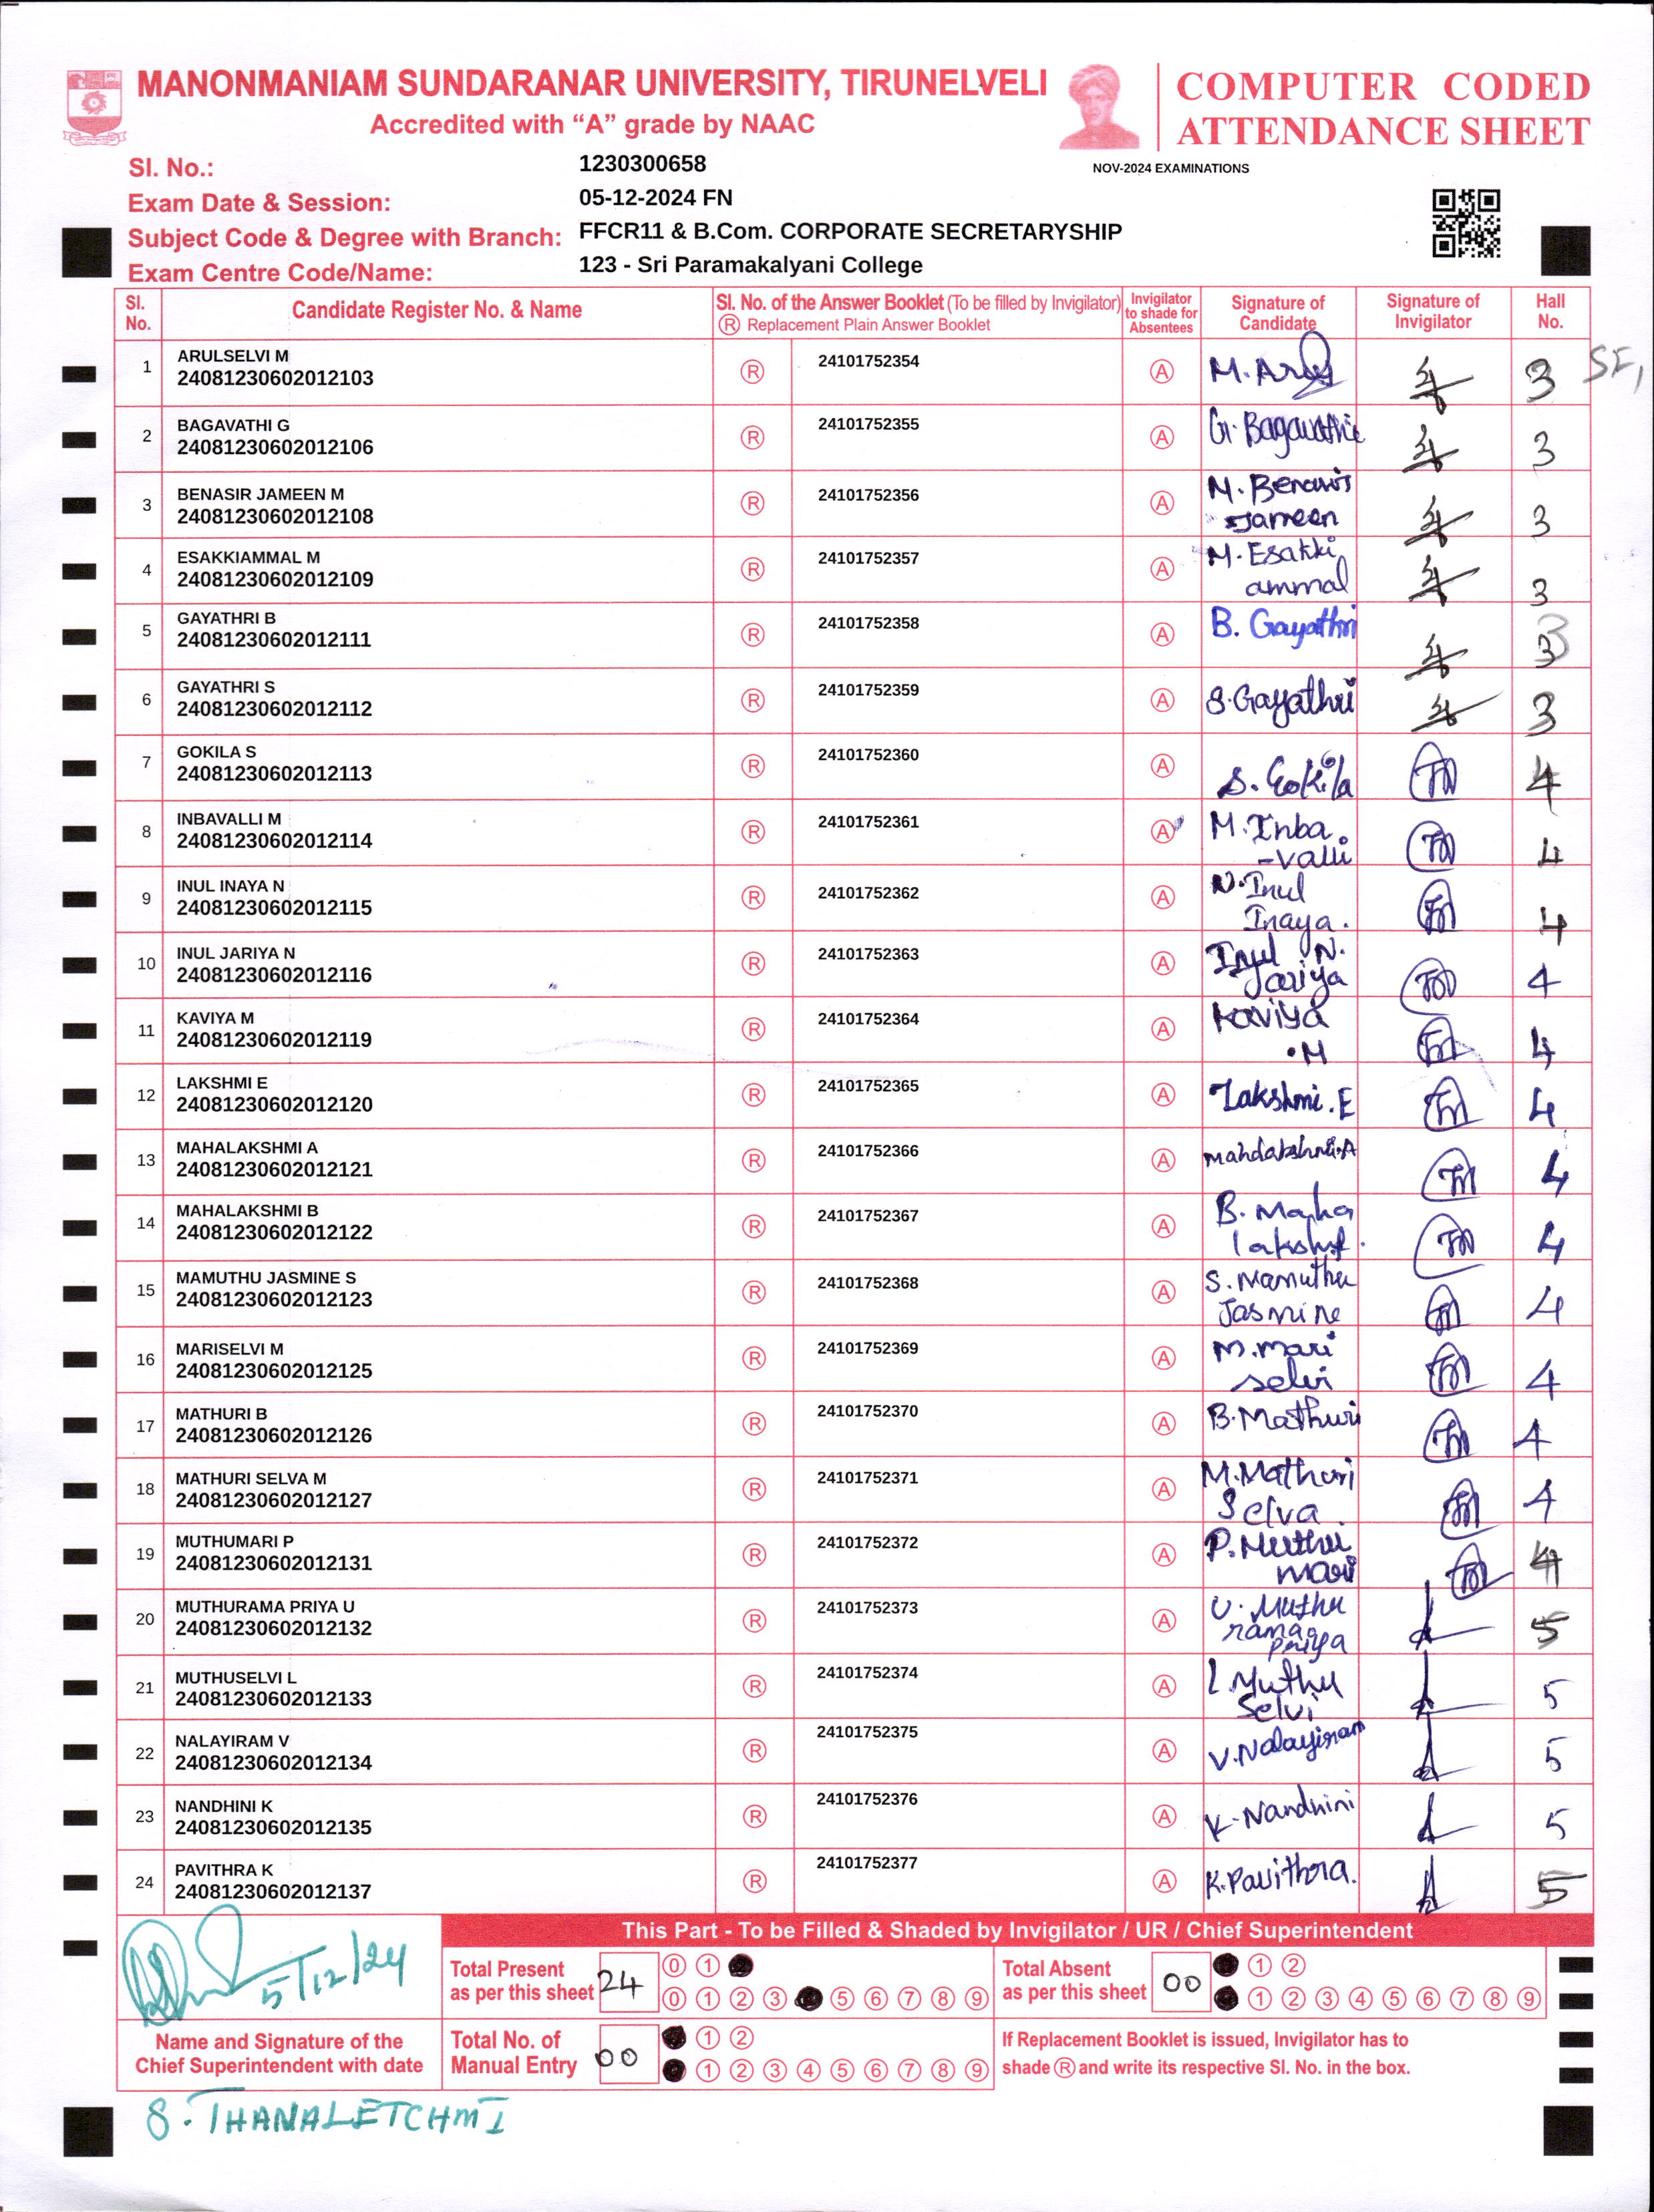 MANONMANIAM SUNDARANAR UNIVERSITY, TIRUNELVELI
Accredited with “A” grade by NAAC
COMPUTER CODED
ATTENDANCE SHEET
NOV-2024 EXAMINATIONS
Sl. No.: 1230300658
Exam Date & Session: 05-12-2024 FN
Subject Code & Degree with Branch: FFCR11 & B.Com. CORPORATE SECRETARYSHIP
Exam Centre Code/Name: 123 - Sri Paramakalyani College
Sl. No. Candidate Register No. & Name Sl. No. of the Answer Booklet (To be filled by Invigilator) Ⓡ Replacement Plain Answer Booklet Invigilator to shade for Absentees Signature of Candidate Signature of Invigilator Hall No.
1 ARULSELVI M 24081230602012103 Ⓡ 24101752354 Ⓐ 3
2 BAGAVATHI G 24081230602012106 Ⓡ 24101752355 Ⓐ G. Bagavathi 3
3 BENASIR JAMEEN M 24081230602012108 Ⓡ 24101752356 Ⓐ Jameen 3
4 ESAKKIAMMAL M 24081230602012109 Ⓡ 24101752357 Ⓐ M. Esakki ammal 3
5 GAYATHRI B 24081230602012111 Ⓡ 24101752358 Ⓐ B. Gayathri 3
6 GAYATHRI S 24081230602012112 Ⓡ 24101752359 Ⓐ S. Gayathri 3
7 GOKILA S 24081230602012113 Ⓡ 24101752360 Ⓐ S. Gokila 4
8 INBAVALLI M 24081230602012114 Ⓡ 24101752361 Ⓐ M. Inba -valli 4
9 INUL INAYA N 24081230602012115 Ⓡ 24101752362 Ⓐ N. Inul Inaya. 4
10 INUL JARIYA N 24081230602012116 Ⓡ 24101752363 Ⓐ Inul N. Jariya 4
11 KAVIYA M 24081230602012119 Ⓡ 24101752364 Ⓐ Kaviya .M 4
12 LAKSHMI E 24081230602012120 Ⓡ 24101752365 Ⓐ Lakshmi. E 4
13 MAHALAKSHMI A 24081230602012121 Ⓡ 24101752366 Ⓐ 4
14 MAHALAKSHMI B 24081230602012122 Ⓡ 24101752367 Ⓐ B. Maha 4
15 MAMUTHU JASMINE S 24081230602012123 Ⓡ 24101752368 Ⓐ S. Mamuthu Jasmine 4
16 MARISELVI M 24081230602012125 Ⓡ 24101752369 Ⓐ M. Mari selvi 4
17 MATHURI B 24081230602012126 Ⓡ 24101752370 Ⓐ B. Mathuri 4
18 MATHURI SELVA M 24081230602012127 Ⓡ 24101752371 Ⓐ M. Mathuri Selva. 4
19 MUTHUMARI P 24081230602012131 Ⓡ 24101752372 Ⓐ P. Muthu mari 4
20 MUTHURAMA PRIYA U 24081230602012132 Ⓡ 24101752373 Ⓐ U. Muthu rama priya 5
21 MUTHUSELVI L 24081230602012133 Ⓡ 24101752374 Ⓐ L Muthu Selvi 5
22 NALAYIRAM V 24081230602012134 Ⓡ 24101752375 Ⓐ V. Nalayiram 5
23 NANDHINI K 24081230602012135 Ⓡ 24101752376 Ⓐ K. Nandhini 5
24 PAVITHRA K 24081230602012137 Ⓡ 24101752377 Ⓐ K. Pavithra. 5
This Part - To be Filled & Shaded by Invigilator / UR / Chief Superintendent
5/12/24
Total Present as per this sheet 24
0 1
0 1 2 3 5 6 7 8 9
Total Absent as per this sheet 00
1 2
1 2 3 4 5 6 7 8 9
Name and Signature of the
Chief Superintendent with date
Total No. of Manual Entry 00
1 2
1 2 3 4 5 6 7 8 9
If Replacement Booklet is issued, Invigilator has to
shade Ⓡ and write its respective Sl. No. in the box.
S. THANALETCHMI